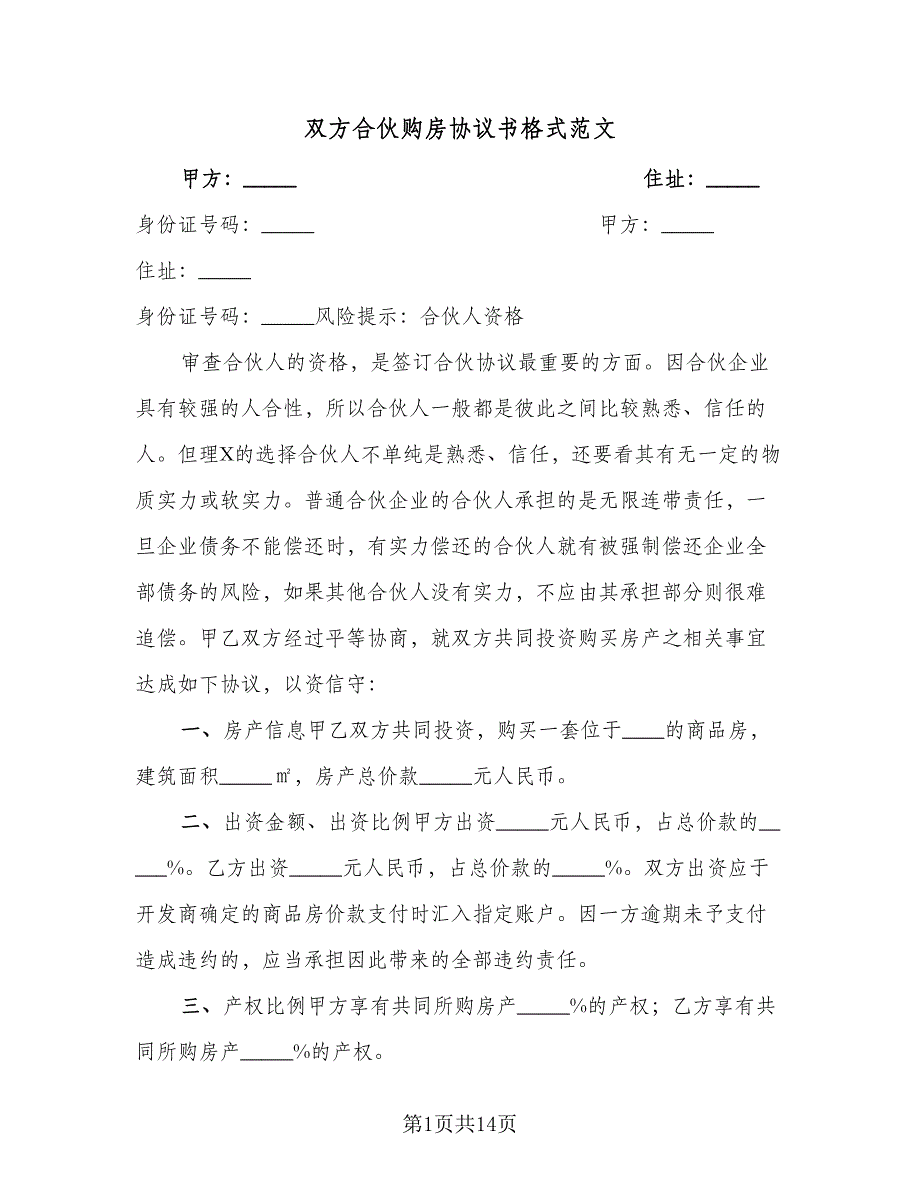 双方合伙购房协议书格式范文
甲方：_____ 住址：_____
身份证号码：_____ 甲方：_____
住址：_____
身份证号码：_____风险提示：合伙人资格
审查合伙人的资格，是签订合伙协议最重要的方面。因合伙企业
具有较强的人合性，所以合伙人一般都是彼此之间比较熟悉、信任的
人。但理X的选择合伙人不单纯是熟悉、信任，还要看其有无一定的物
质实力或软实力。普通合伙企业的合伙人承担的是无限连带责任，一
旦企业债务不能偿还时，有实力偿还的合伙人就有被强制偿还企业全
部债务的风险，如果其他合伙人没有实力，不应由其承担部分则很难
追偿。甲乙双方经过平等协商，就双方共同投资购买房产之相关事宜
达成如下协议，以资信守：
一、房产信息甲乙双方共同投资，购买一套位于____的商品房，
建筑面积_____㎡，房产总价款_____元人民币。
二、出资金额、出资比例甲方出资_____元人民币，占总价款的__
___%。乙方出资_____元人民币，占总价款的_____%。双方出资应于
开发商确定的商品房价款支付时汇入指定账户。因一方逾期未予支付
造成违约的，应当承担因此带来的全部违约责任。
三、产权比例甲方享有共同所购房产_____%的产权；乙方享有共
同所购房产_____%的产权。
第1页共14页